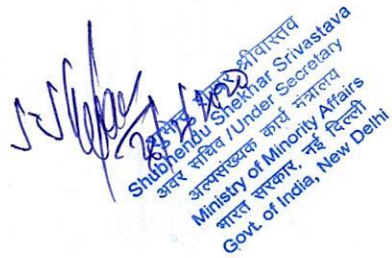 शेखर श्रीवास्तव
Shubhendu Shekhar Srivastava
अवर सचिव / Under Secretary
अल्पसंख्यक कार्य मंत्रालय
Ministry of Minority Affairs
भारत सरकार, नई दिल्ली
Govt. of India, New Delhi